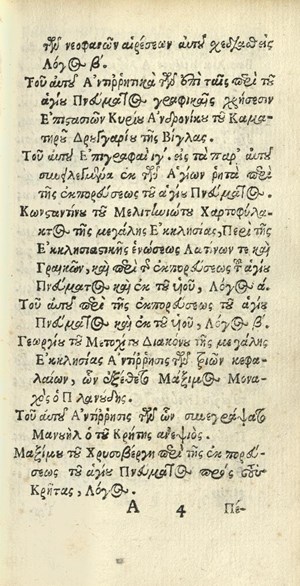 τῶν νεοφανῶν αἱρέσεων αὐτῷ σχεδιασθεὶς
Λόγος β.
Τοῦ αὐτοῦ Ἀντιῤῥητικὰ τῶν ὑπὶ ταῖς περὶ τοῦ
ἁγίου Πνεύματος γραφικαῖς χρήσεσιν
Ἐπιστασιῶν Κυρίου Ἀνδρονίκου τοῦ Καμα-
τηροῦ Δρυγγαρίου τῆς Βίγλας.
Τοῦ αὐτοῦ Ἐπιγραφαὶ ιγ. εἰς τὰ παρ' αὐτοῦ
συνειλεγμένα ἐκ τῶν Ἁγίων ῥητὰ περὶ
τῆς ἐκπορεύσεως τοῦ ἁγίου Πνεύματος.
Κωνσταντίνου τοῦ Μελιτηνιώτου Χαρτοφύλα-
κος τῆς μεγάλης Ἐκκλησίας, Περὶ τῆς
Ἐκκλησιαστικῆς ἑνώσεως Λατίνων τε καὶ
Γραικῶν, καὶ περὶ τῆς ἐκπορεύσεως τοῦ ἁγίου
Πνεύματος καὶ ἐκ τοῦ υἱοῦ, Λόγος ά.
Τοῦ αὐτοῦ περὶ τῆς ἐκπορεύσεως τοῦ ἁγίου
Πνεύματος καὶ ἐκ τοῦ υἱοῦ, Λόγος β'.
Γεωργίου τοῦ Μετοχίτου Διακόνου τῆς μεγάλης
Ἐκκλησίας Ἀντίῤῥησις τῶν τριῶν κεφα-
λαίων, ὧν ἐξέθετο Μάξιμος Μονα-
χὸς ὁ Πλανούδης.
Τοῦ αὐτοῦ Ἀντίῤῥησις τῶν ὧν συνεγράψατο
Μανουὴλ ὁ τοῦ Κρήτης ἀνεψιός.
Μαξίμου τοῦ Χρυσοβέργη περὶ τῆς ἐκπορεύ-
σεως τοῦ ἁγίου Πνεύματος πρὸς τοὺς
Κρῆτας, Λόγος.
A 4 Πέ-